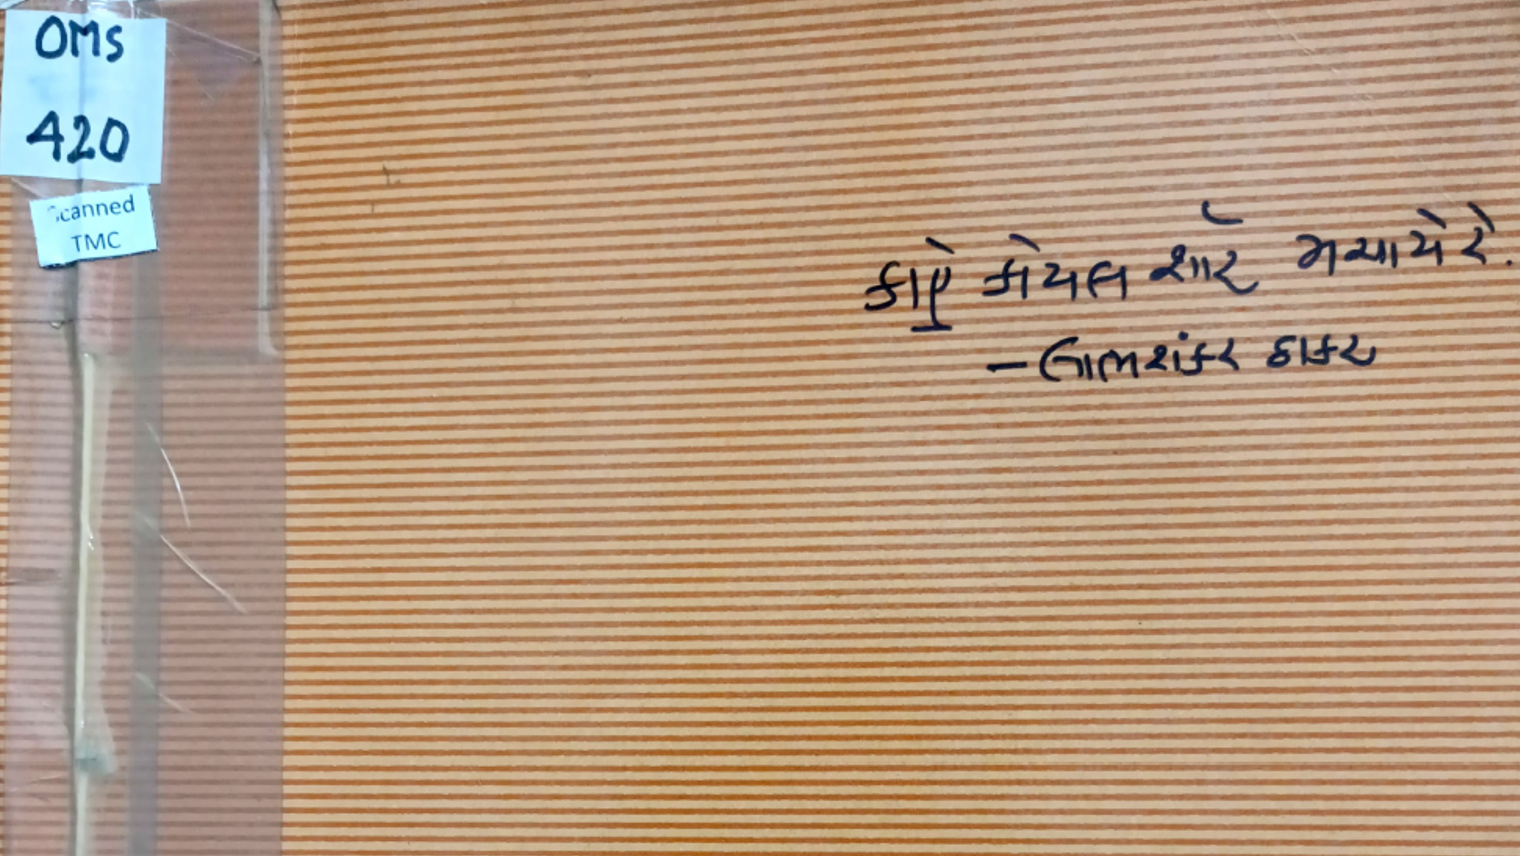 OMS
420
Scanned
TMC
કાહે કોયલ શોર મચાયે રે.
– લાભશંકર ઠાકર